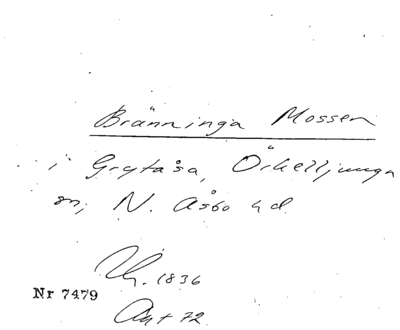 Bränninga Mossen
i Grytåsa, Örkelljunga
sn, N. Åsbo hd
Nr 7479